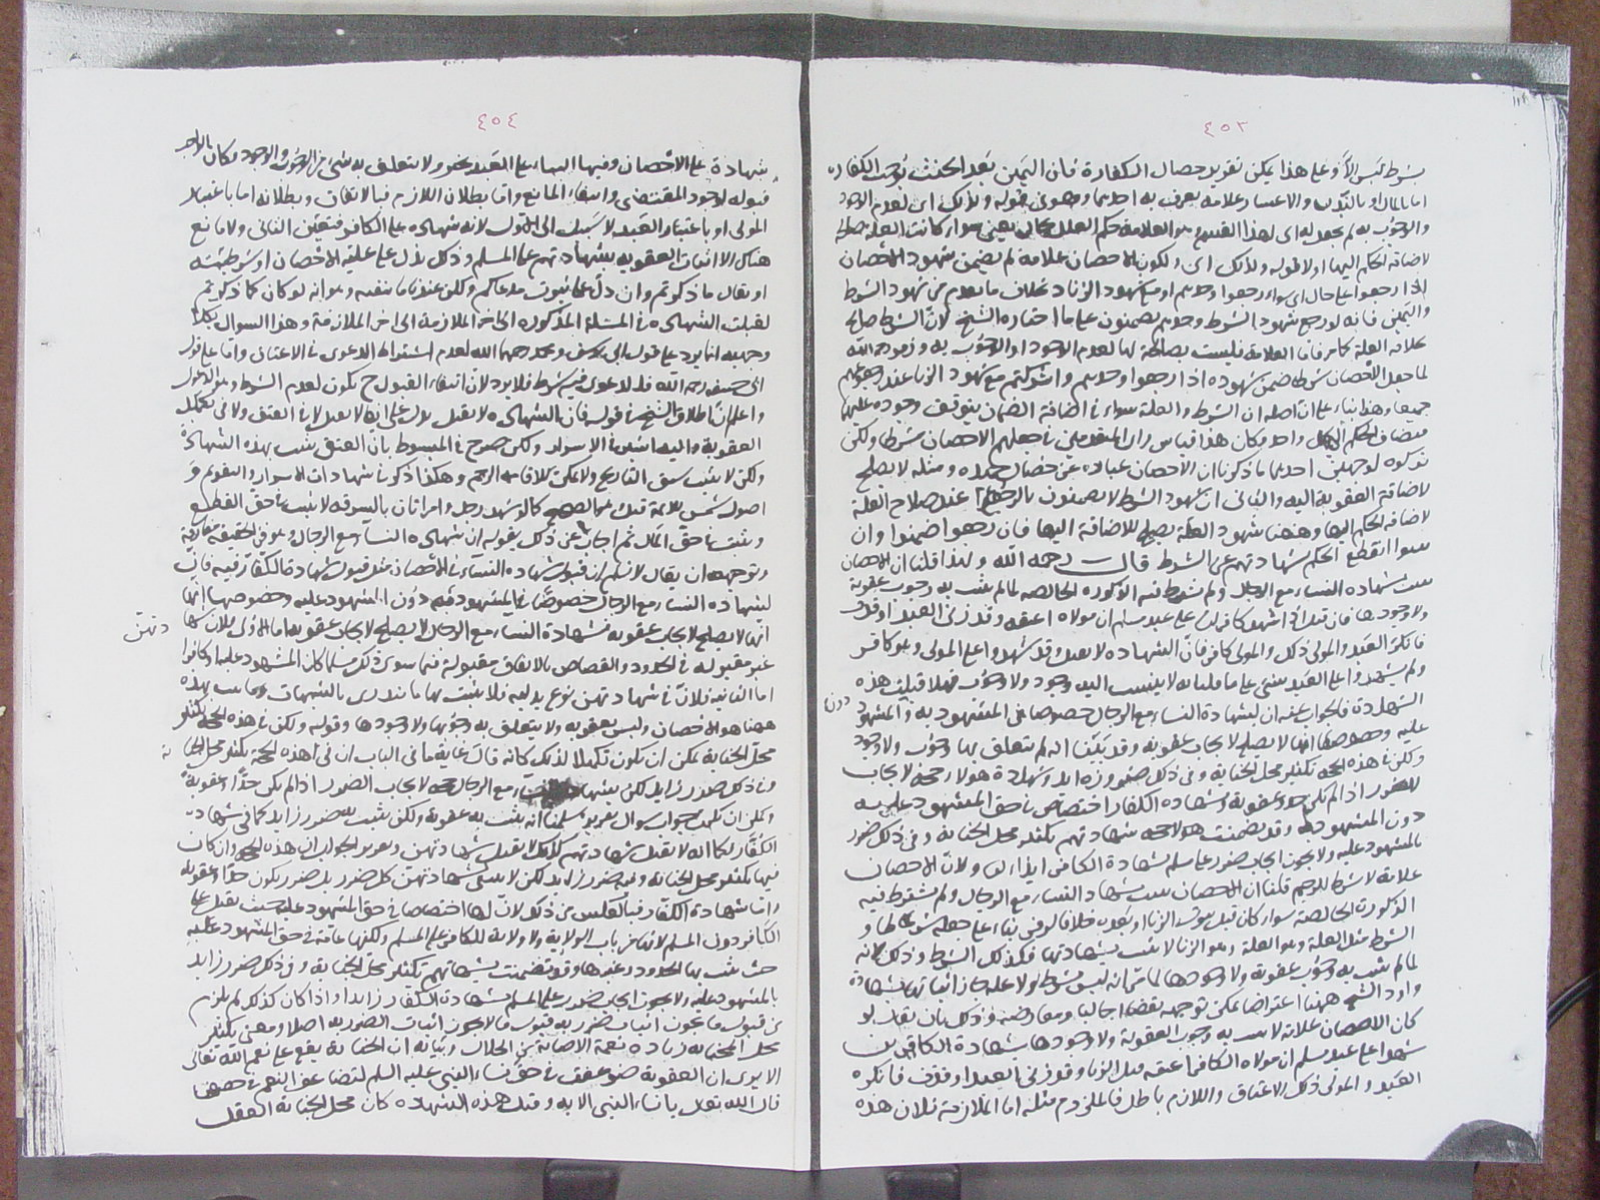 ٤٥٣
بشرط ليس الا وعلى هذا يمكن تقرير خصال الكفارة فان اليمين بعد الحنث توجب الكفارة
اما بالمال او بالبدن والاعسار علامة يعرف به احديهما وهو في قوله ولذلك اى لعدم الوجود
والوجوب به لم يجعل له اى لهذا القسم وهو العلامة حكم العلل بحال يعنى سواء كانت العلة صالحة
لاضافة الحكم اليها او لا قوله ولذلك اى ولكون الاحصان علامة لم يضمن شهود الاحصان
اذا رجعوا على حال اى سواء رجعوا وحدهم او مع شهود الزنا بخلاف ما تقدم من شهود الشرط
واليمين فانه لو رجع شهود الشرط وحدهم يضمنون على ما اختاره الشيخ لان الشرط صالح
لخلافة العلة كما مر فاما العلامة فليست بصالحة لها لعدم الوجود او الوجوب به وزفر رحمه الله
لما جعل الاحصان شرطا ضمن شهوده اذا رجعوا وحدهم واشركتم مع شهود الزنا عند رجوعهم
جميعا وهذا بناء على ان اصله ان الشرط والعلة سواء فى اضافة الضمان يتوقف وجوده عليهما
فيضاف الحكم الى كل واحد وكان هذا قياس راى المتقدمين فى جعلهم الاحصان شرطا ولكن
تركوه لوجهين احدهما ما ذكرنا ان الاحصان عبارة عن خصال حميدة ومثله لا يصلح
لاضافة العقوبة اليه والثانى ان شهود الشرط لا يضمنون بالرجوع عند صلاح العلة
لاضافة الحكم اليها وههنا شهود العلة يصلح للاضافة اليها فان رجعوا ضمنوا وان
ثبتوا انقطع الحكم بشهادتهم عن الشرط قال رحمه الله ولهذا قلنا ان الاحصان
يثبت بشهادة النساء مع الرجال ولم يشترط فيه الذكورة الخالصة لما لم يثبت به وجوب عقوبة
ولا وجودها فان قيل اذا شهد كافران على عبد مسلم ان مولاه اعتقه وقد زنى العبد او قذف
فانكر العبد والمولى ذلك والمولى كافر فان الشهادة لا تقبل وقد شهدوا على المولى وهو كافر
ولم يشهدوا على العبد بشئ على ما قلنا انه لا ينتسب اليه وجود ولا وجوب فهلا قبلت هذه
الشهادة فالجواب عنه ان لشهادة النساء مع الرجال خصوصا فى المشهود به دون المشهود
عليه وخصوصها انها لا يصلح لايجاب عقوبة وقد بينا انه لم يتعلق بها وجوب ولا وجود
ولكن فى هذه الحجة تكثير محل الجناية وفى ذلك ضرر زائد وشهادة هولاء حجة لايجاب
الضرر اذا لم يكن حدا وعقوبة وشهادة الكفار اختصاص فى حق المشهود عليه
دون المشهود به وقد تضمنت هولاء حجة شهادتهم تكثير محل الجناية وفى ذلك ضرر
بالمشهود عليه ولا يجوز ايجاب ضرر على مسلم بشهادة الكافر ولان الاحصان
علامة لا شرط للرجم قلنا ان الاحصان يثبت بشهادة النساء مع الرجال ولم يشترط فيه
الذكورة الخالصة سواء كان قبل ثبوت الزنا او بعده خلافا لزفر بناء على جعله شرطا و
الشرط مثل العلة وهو العلة وهو الزنا لا يثبت بشهادتها فكذلك الشرط وذلك لانه
لما لم يثبت به وجوب عقوبة ولا وجودها لما مر انه ليس بشرط ولا علة جاز اثباته بشهادة
واورد الشيخ ههنا اعتراضا يمكن توجيهه نقضا اجماليا ومعارضة وذلك بان يقال لو
كان الاحصان علامة لا يثبت به وجوب العقوبة ولا وجودها بشهادة الكافرين
شهدا على عبد مسلم ان مولاه الكافر اعتقه قبل الزنا وقد زنى العبد او قذف فانكره
العبد والمولى ذلك الاعتاق واللازم باطل فالملزوم مثله اما الملازمة فلان هذه
٤٥٤
شهادة على الاحصان وفيها انها على العبد بخير ولا يتعلق به شئ من الوجوب والوجود فكان بالاحر
قبوله لوجود المقتضى وانتفاء المانع واما بطلان اللازم فبالاتفاق وبطلانه اما باعتبار
المولى او باعتبار العبد لا سبيل الى الاول لانه شهادة على الكافر فتعين الثانى ولا مانع
هناك الا اثبات العقوبة بشهادتهم على المسلم وذلك يدل على علية الاحصان او شرطيته
او يقال ما ذكرتم وان دل على ثبوت مدعاكم ولكن عندنا ما ينفيه وهو انه لو كان كما ذكرتم
لقبلت الشهادة فى المسئلة المذكورة الى اخر الملازمة الى اخر الملازمة وهذا السوال بكلا
وجهيه انما يرد على قول ابى يوسف ومحمد رحمهما الله لعدم اشتراط الدعوى فى الاعتاق واما على قول
ابى حنيفة رحمه الله فلا لدعوى فيه شرط فلا يرد لان انتفاء القبول ح يكون لعدم الشرط وهو الدعوى
واعلم ان اطلاق الشيخ فى قوله فان الشهادة لا تقبل يدل على انها لا تقبل لا فى العتق ولا فى تكميل
العقوبة واليه اشير فى الاسرار ولكن صرح فى المبسوط بان العتق يثبت بهذه الشهادة
ولكن لا يثبت سبق التاريخ ولا يمكن للاقامة الرجم وهكذا ذكر فى شهادات الاسرار والتقويم و
اصول شمس الائمة فتكون كما لو شهد رجل وامراتان بالسرقة لا يثبت فى حق القطع
ويثبت فى حق المال ثم اجاب عن ذلك بقوله ان شهادة النساء مع الرجال وهو فى الحقيقة معارضة
وتوجيهه ان يقال لا نسلم ان قبول شهادة النساء فى الاحصان مثل قبول شهادة الكفار فيه فان
لشهادة النساء مع الرجال خصوصا فى المشهود به دون المشهود عليه وخصوصها انها
انها لا يصلح لايجاب عقوبة فشهادة النساء مع الرجال لا يصلح لايجاب عقوبة اما الاولى فلان شهادتهن
غير مقبولة فى الحدود والقصاص بالاتفاق مقبولة فيما سوى ذلك مسلما كان المشهود عليه او كافرا
اما الثانية فلان فى شهادتهن نوع بدلية فلا يثبت بها ما يندرى بالشبهات وما يثبت بهذه
ههنا هو الاحصان وليس بعقوبة ولا يتعلق به وجوبها ولا وجودها وقوله ولكن فى هذه الحجة تكثير
محل الجناية يمكن ان يكون تكميلا لذلك كانه قال غاية ما فى الباب ان فى هذه الحجة تكثير محل الجناية
وفى ذلك ضرر زايد لكن شهادة النساء مع الرجال حجة لايجاب الضرر اذا لم يكن حدا وعقوبة
ويمكن ان يكون جواب سوال تقريره سلمنا انه يثبت به عقوبة ولكن يثبت به ضرر زايد كما فى شهادة
الكفار فكما انه لا تقبل شهادتهم كذلك لا تقبل شهادتهن وتقرير الجواب ان هذه الحجة وان كان
فيها تكثير محل الجناية وفيه ضرر زايد لكن لا يسمى شهادتهن كل ضرر بل ضرر يكون حدا وعقوبة
واما شهادة الكفار فبالعكس من ذلك لان لها اختصاصا فى حق المشهود عليه حيث تقبل على
الكافر دون المسلم لانها من باب الولاية ولا ولاية للكافر على المسلم ولكنها عامة فى حق المشهود عليه
حيث يثبت بها الحدود وغيرها وقد تضمنت شهادتهم تكثير محل الجناية وفى ذلك ضرر زايد
بالمشهود عليه ولا يجوز ايجاب ضرر على المسلم بشهادة الكفار زايدا واذا كان كذلك لم يلزم
من قبول ما يجوز اثبات ضرر به قبول ما لا يجوز اثبات الضرر به اصلا ومعنى تكثير
محل الجناية زيادة نعمة الاصابة من الحلال وبيانه ان الجناية يقع على نعم الله تعالى
الا يرى ان العقوبة ضوعفت فى حق نساء النبى عليه السلم لتضاعف النعم فى حقهن
قال الله تعالى يا نساء النبى الاية وقبل هذه الشهادة كان محل الجناية العقل